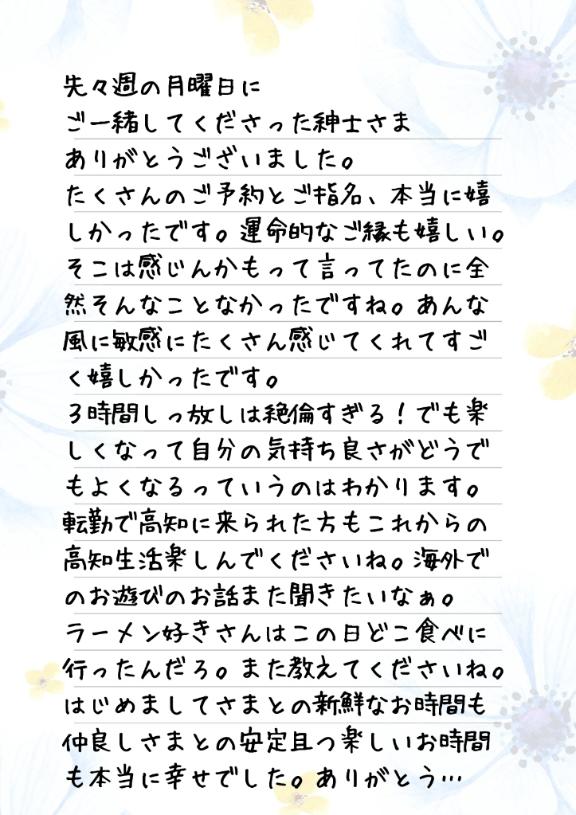 先々週の月曜日に
ご一緒してくださった紳士さま
ありがとうございました。
たくさんのご予約とご指名、本当に嬉
しかったです。運命的なご縁も嬉しい。
そこは感じんかもって言ってたのに全
然そんなことなかったですね。あんな
風に敏感にたくさん感じてくれてすご
く嬉しかったです。
3時間しっ放しは絶倫すぎる！でも楽
しくなって自分の気持ち良さがどうで
もよくなるっていうのはわかります。
転勤で高知に来られた方もこれからの
高知生活楽しんでくださいね。海外で
のお遊びのお話また聞きたいなぁ。
ラーメン好きさんはこの日どこ食べに
行ったんだろ。また教えてくださいね。
はじめましてさまとの新鮮なお時間も
仲良しさまとの安定且つ楽しいお時間
も本当に幸せでした。ありがとう…